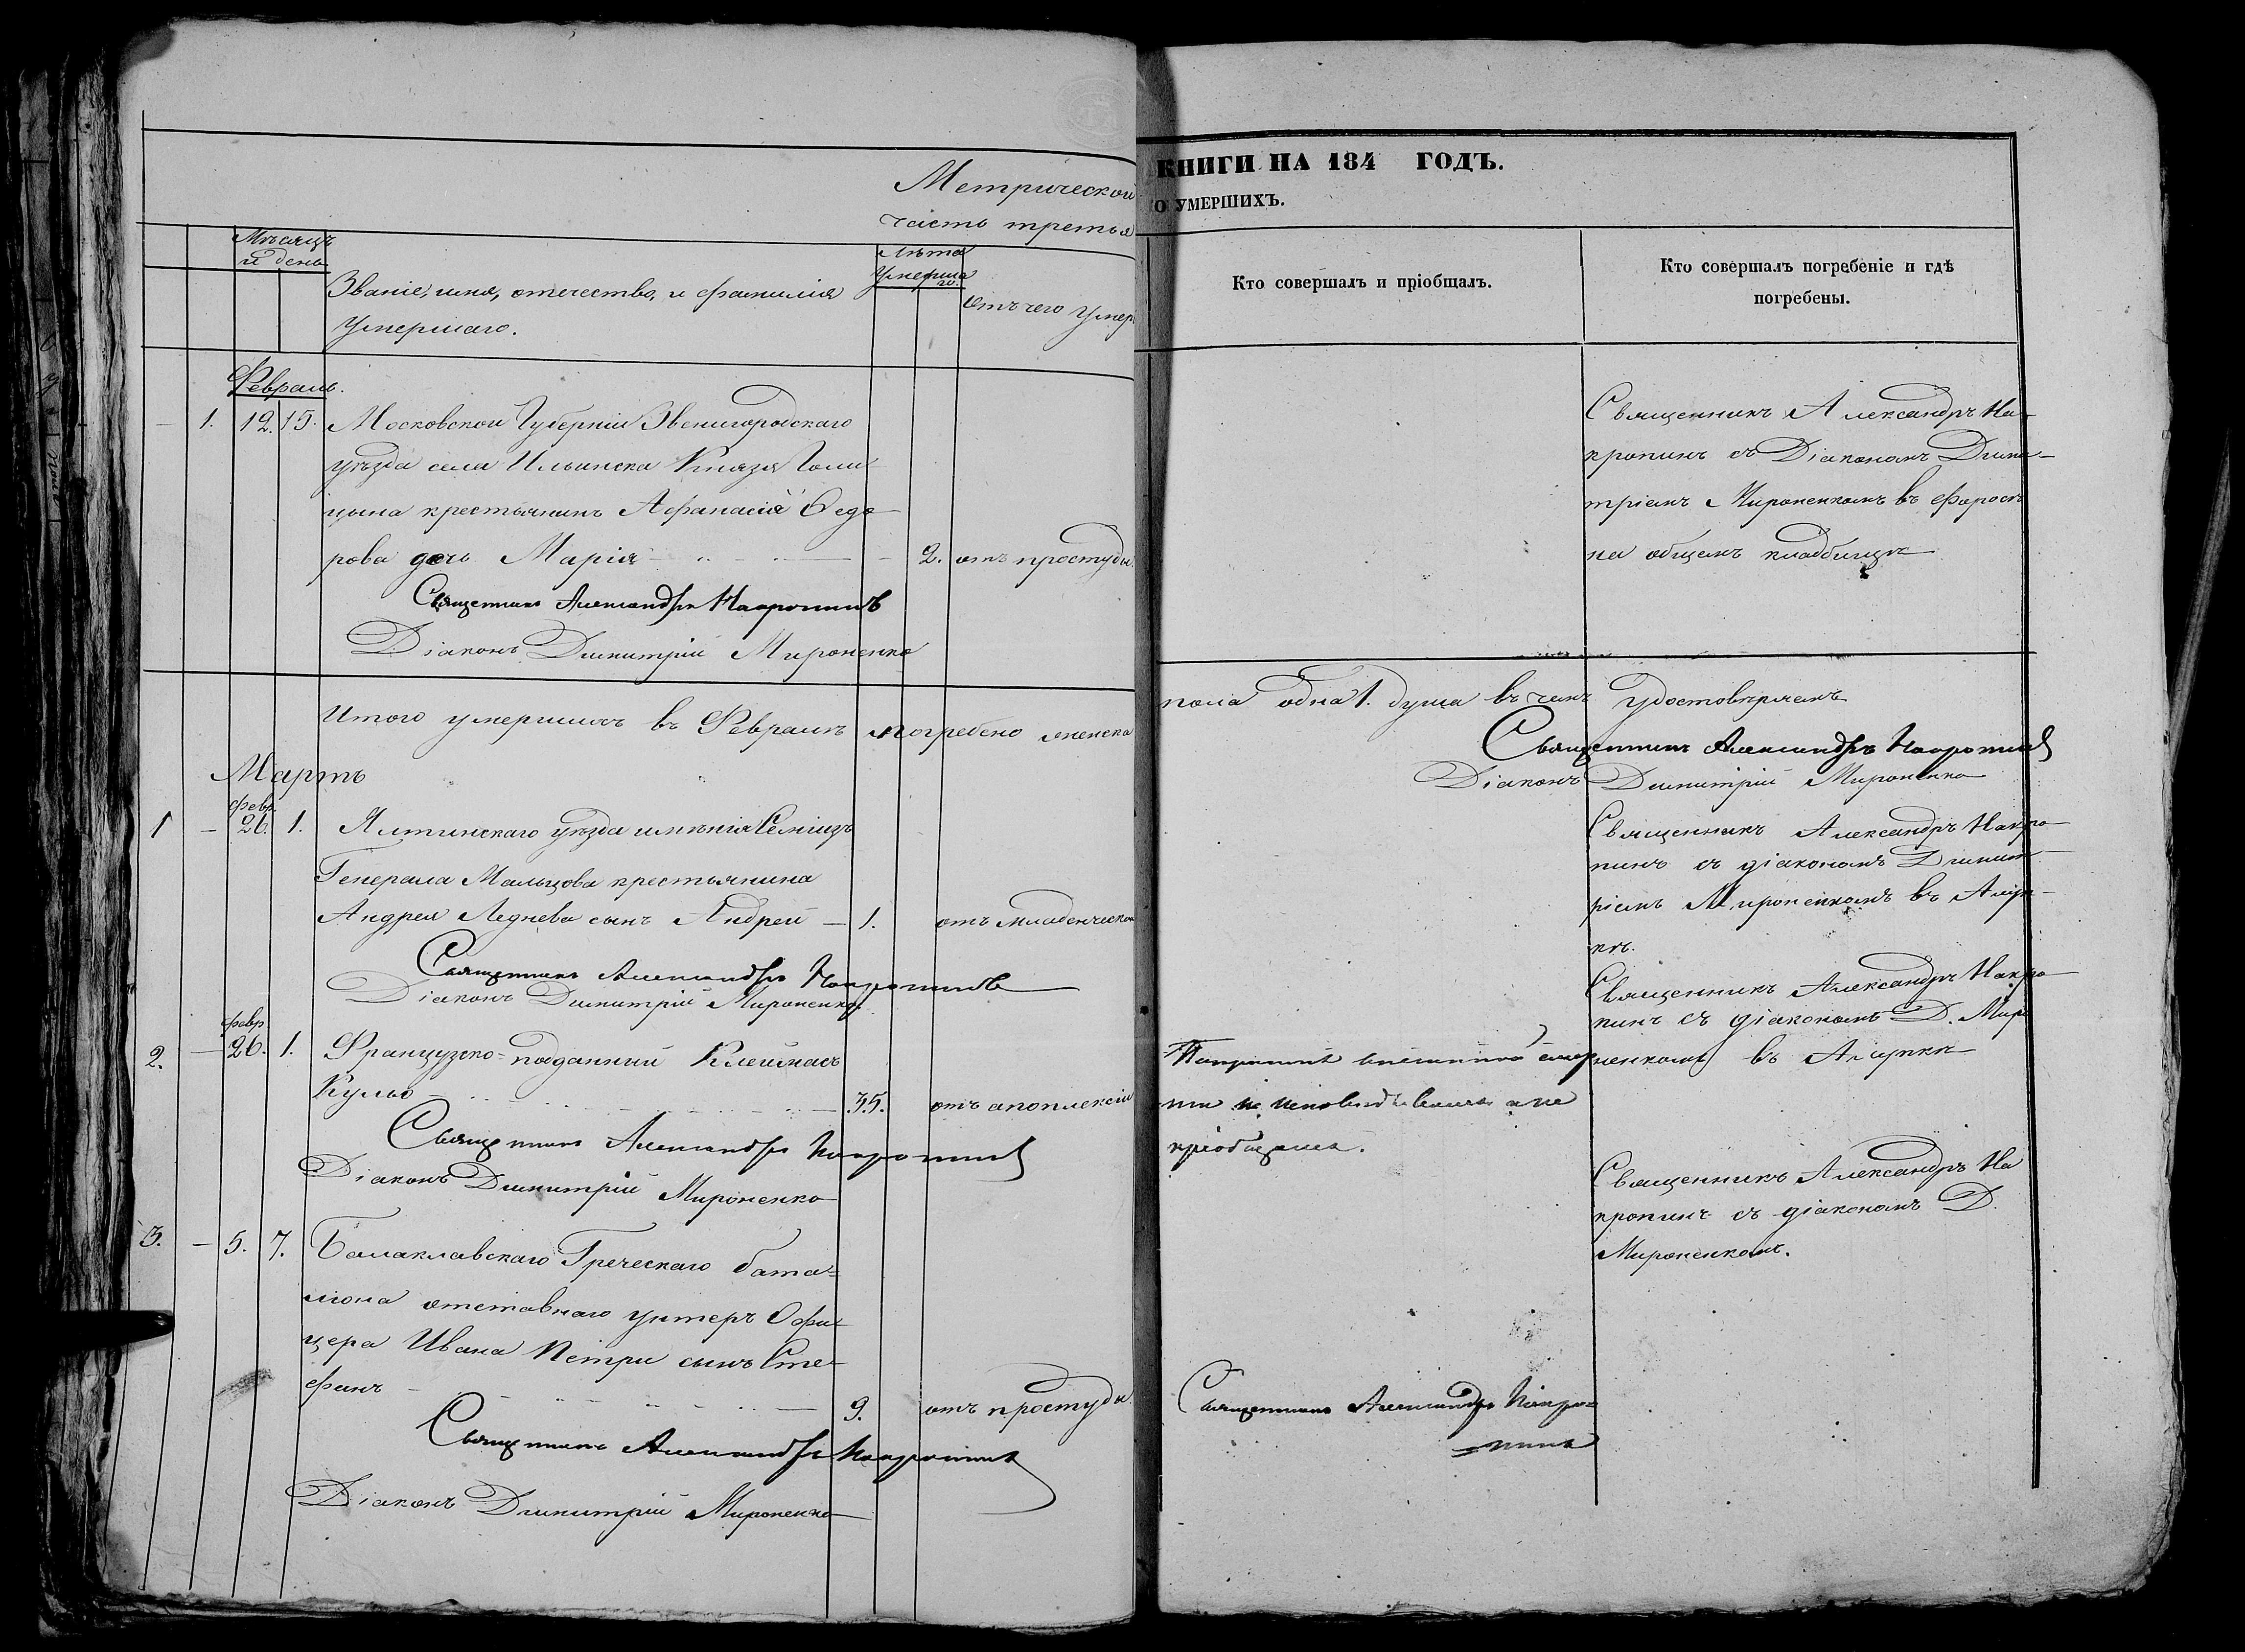 Метрической
часть третья
КНИГИ НА 184 ГОДЪ.
О УМЕРШИХЪ.
Мѣсяцъ
и день
Званіе, имя, отечество, и фамилія
умершаго.
Лѣта
умерша
го.
отъ чего умер
Кто совершалъ и пріобщалъ.
Кто совершалъ погребеніе и гдѣ
погребены.
Февраль.
1. 12. 15. Московской Губерніи Звенигородскаго
уѣзда села Ильинска Князя Голи
цына крестьянинъ Афанасія Ѳедо
рова дочь Марія 2. отъ простуды.
Священникъ Александръ Накропинъ
Діаконъ Димитрій Мироненко
Священникъ Александръ На-
кропинъ съ Діакономъ Дими-
тріемъ Мироненкомъ въ Форосѣ
на общемъ кладбищѣ
Итого умершихъ въ Февралѣ погребено женска
пола одна 1. душа въ чемъ удостовѣряемъ
Священникъ Александръ Накропинъ
Діаконъ Димитрій Мироненко
Мартъ
1 – февр. 26. 1. Ялтинскаго уѣзда имѣнія Семіизъ
Генерала Мальцова крестьянина
Андрея Леднева сынъ Андрей – 1. отъ младенческой
Священникъ Александръ Накропинъ
Діаконъ Димитрій Мироненко
Священникъ Александръ Накро-
пинъ съ діакономъ Димит-
ріемъ Мироненкомъ въ Алуп-
кѣ.
2. – февр 26. 1. Французско-подданный
Кульо 35. отъ апоплексіи
Священникъ Александръ Накропинъ
Діаконъ Димитрій Мироненко
смер
ти не исповѣдывался и не
пріобщался.
Священникъ Александръ Накро-
пинъ съ діакономъ Д. Миро
ненкомъ въ Алупкѣ
3. – 5. 7. Балаклавскаго Греческаго бата-
ліона отставнаго унтеръ Офи-
цера Ивана Петри сынъ Сте-
фанъ 9. отъ простуды.
Священникъ Александръ Накропинъ
Діаконъ Димитрій Мироненко
Священникъ Александръ Накро=
=пинъ
Священникъ Александръ На
кропинъ съ діакономъ Д.
Мироненкомъ.